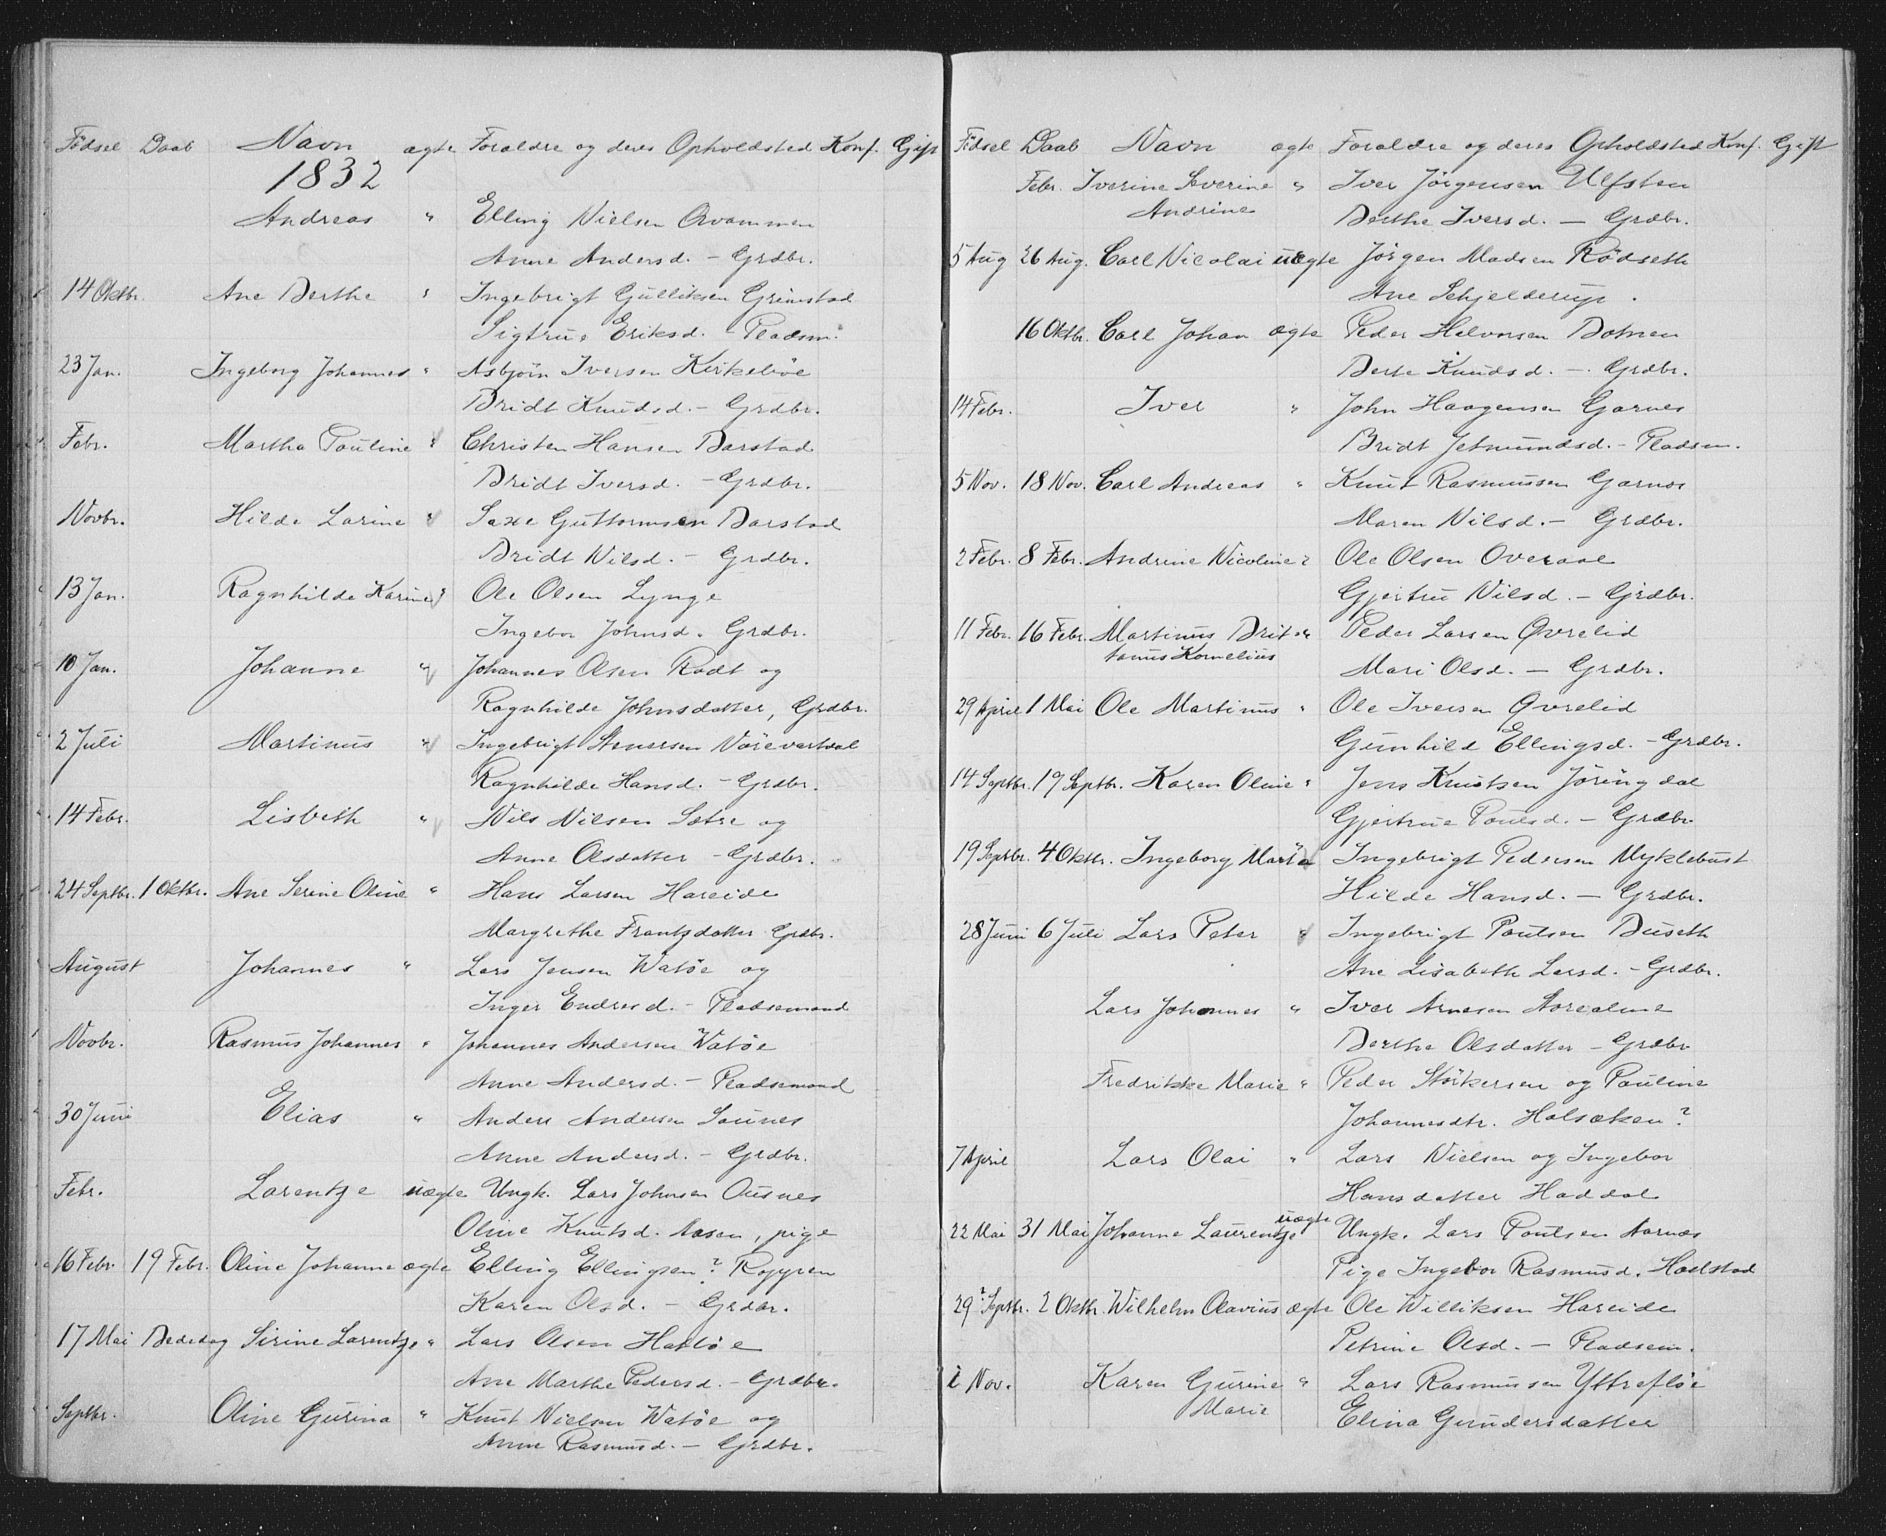 Födsel Daab Navn ægte Forældre og deres Opholdsted Konf. Gift
1832
Andreas " Elling Nielsen Qvammen
Anne Andersd. - Grdbr.
14 Oktbr. Ane Berthe " Ingebrigt Gulliksen Grimstad
Sigtrue Eriksd. - Pladsm.
23 Jan. Ingeborg Johannes " Asbjörn Iversen Kirkeböe
Bridt Knudsd. - Grdbr.
Febr. Martha Pouline " Christen Hansen Barstad
Bridt Iversd. - Grdbr.
Novbr. Hilde Larine " Saxe Guttormsen Barstad
Bridt Nilsd. - Grdbr.
13 Jan. Ragnhilde Karine " Ole Olsen Lynge
Ingebor Johnsd. Grdbr.
10 Jan. Johanne " Johannes Olsen Rödt og
Ragnhilde Johnsdatter, Grdbr.
2 Juli Martinus " Ingebrigt
Ragnhilde Hansd. - Grdbr.
14 Febr. Lisbeth " Nils Nilsen Sætre og
Anne Olsdatter - Grdbr.
24 Septbr. 1 Oktbr. Ane Serine Oline " Hans Larsen Hareide
Margrethe Frantzdatter Grdbr.
August Johannes " Lars Jensen Watöe og
Inger Endresd. - Pladsemand
Novbr. Rasmus Johannes " Johannes Andersen Watöe
Anne Andersd. - Pladsemand
30 Juni Elias " Anders Andersen Saunes
Anne Andersd. - Grdbr.
Febr. Larentze uægte Ungk. Lars Johnsen Ousnes
Oline Knutsd. Aasen, pige
16 Febr. 19 Febr. Oline Johanne ægte Elling Ellingsen? Ryggen
Karen Olsd. - Grdbr.
17 Mai Bededag Sirine Larentze " Lars Olsen Hatlöe
Ane Marthe Pedersd. - Grdbr.
Septbr. Oline Gurina " Knut Nielsen Watöe og
Anne Rasmusd. - Grdbr.
Födsel Daab Navn ægte Forældre og deres Opholdsted Konf. Gift
Febr. Iverine Severine " Iver Jörgensen Ulfsten
Andrine Berthe Iversd. - Grdbr.
5 Aug 26 Aug. Carl Nicolai uægte Jörgen Madsen Rödseth
Ane Schjelderup.
16 Oktbr. Carl Johan ægte Peder Halvorsen Botnen
Berte Knudsd. - Grdbr.
14 Febr. Iver " John Haagensen Garnes
Bridt Jetmundsd. - Pladsm.
5 Nov. 18 Nov. Carl Andreas " Knut Rasmussen Garnes
Maren Nilsd. - Grdbr.
2 Febr. 8 Febr. Andrine Nicoline " Ole Olsen Overaae
Gjertru Nilsd. - Grdbr.
11 Febr. 16 Febr. Martinus Brit- " Peder Larsen Øvrelid
tanus Kornelius Mari Olsd. - Grdbr.
29 April 1 Mai Ole Martinus " Ole Iversen Øvrelid
Gunhild Ellingsd. - Grdbr.
14 Septbr. 19 Septbr. Karen Oline " Jens Knutsen Jöringdal
Gjertrue Poulsd. - Grdbr.
19 Septbr. 4 Oktbr. Ingeborg Marta Ingebrigt Pedersen Myklebust
Hilde Hansd. - Grdbr.
28 Juni 6 Juli Lars Peter " Ingebrigt Poulsen Buseth
Ane Lisabeth Larsd. - Grdbr.
Lars Johannes " Iver Arnesen
Berthe Olsdatter - Grdbr
Fredrikke Marie " Peder Störkersen og Pauline
Johannesdtr. Holsæken?
7 April Lars Olai " Lars Nielsen og Ingebor
Hansdatter Haddal
22 Mai 31 Mai Johanne Laurentze uægte Ungk. Lars Poulsen Aarnæs
Pige Ingebor Rasmusd. Haelstad
29? Septbr. 2 Oktbr. Wilhelm Olavius ægte Ole Williksen Hareide
Petrine Olsd. - Pladsem.
i Nov. Karen Gurine " Lars Rasmussen Yttreflöe
Marie Elina Gundersdatter